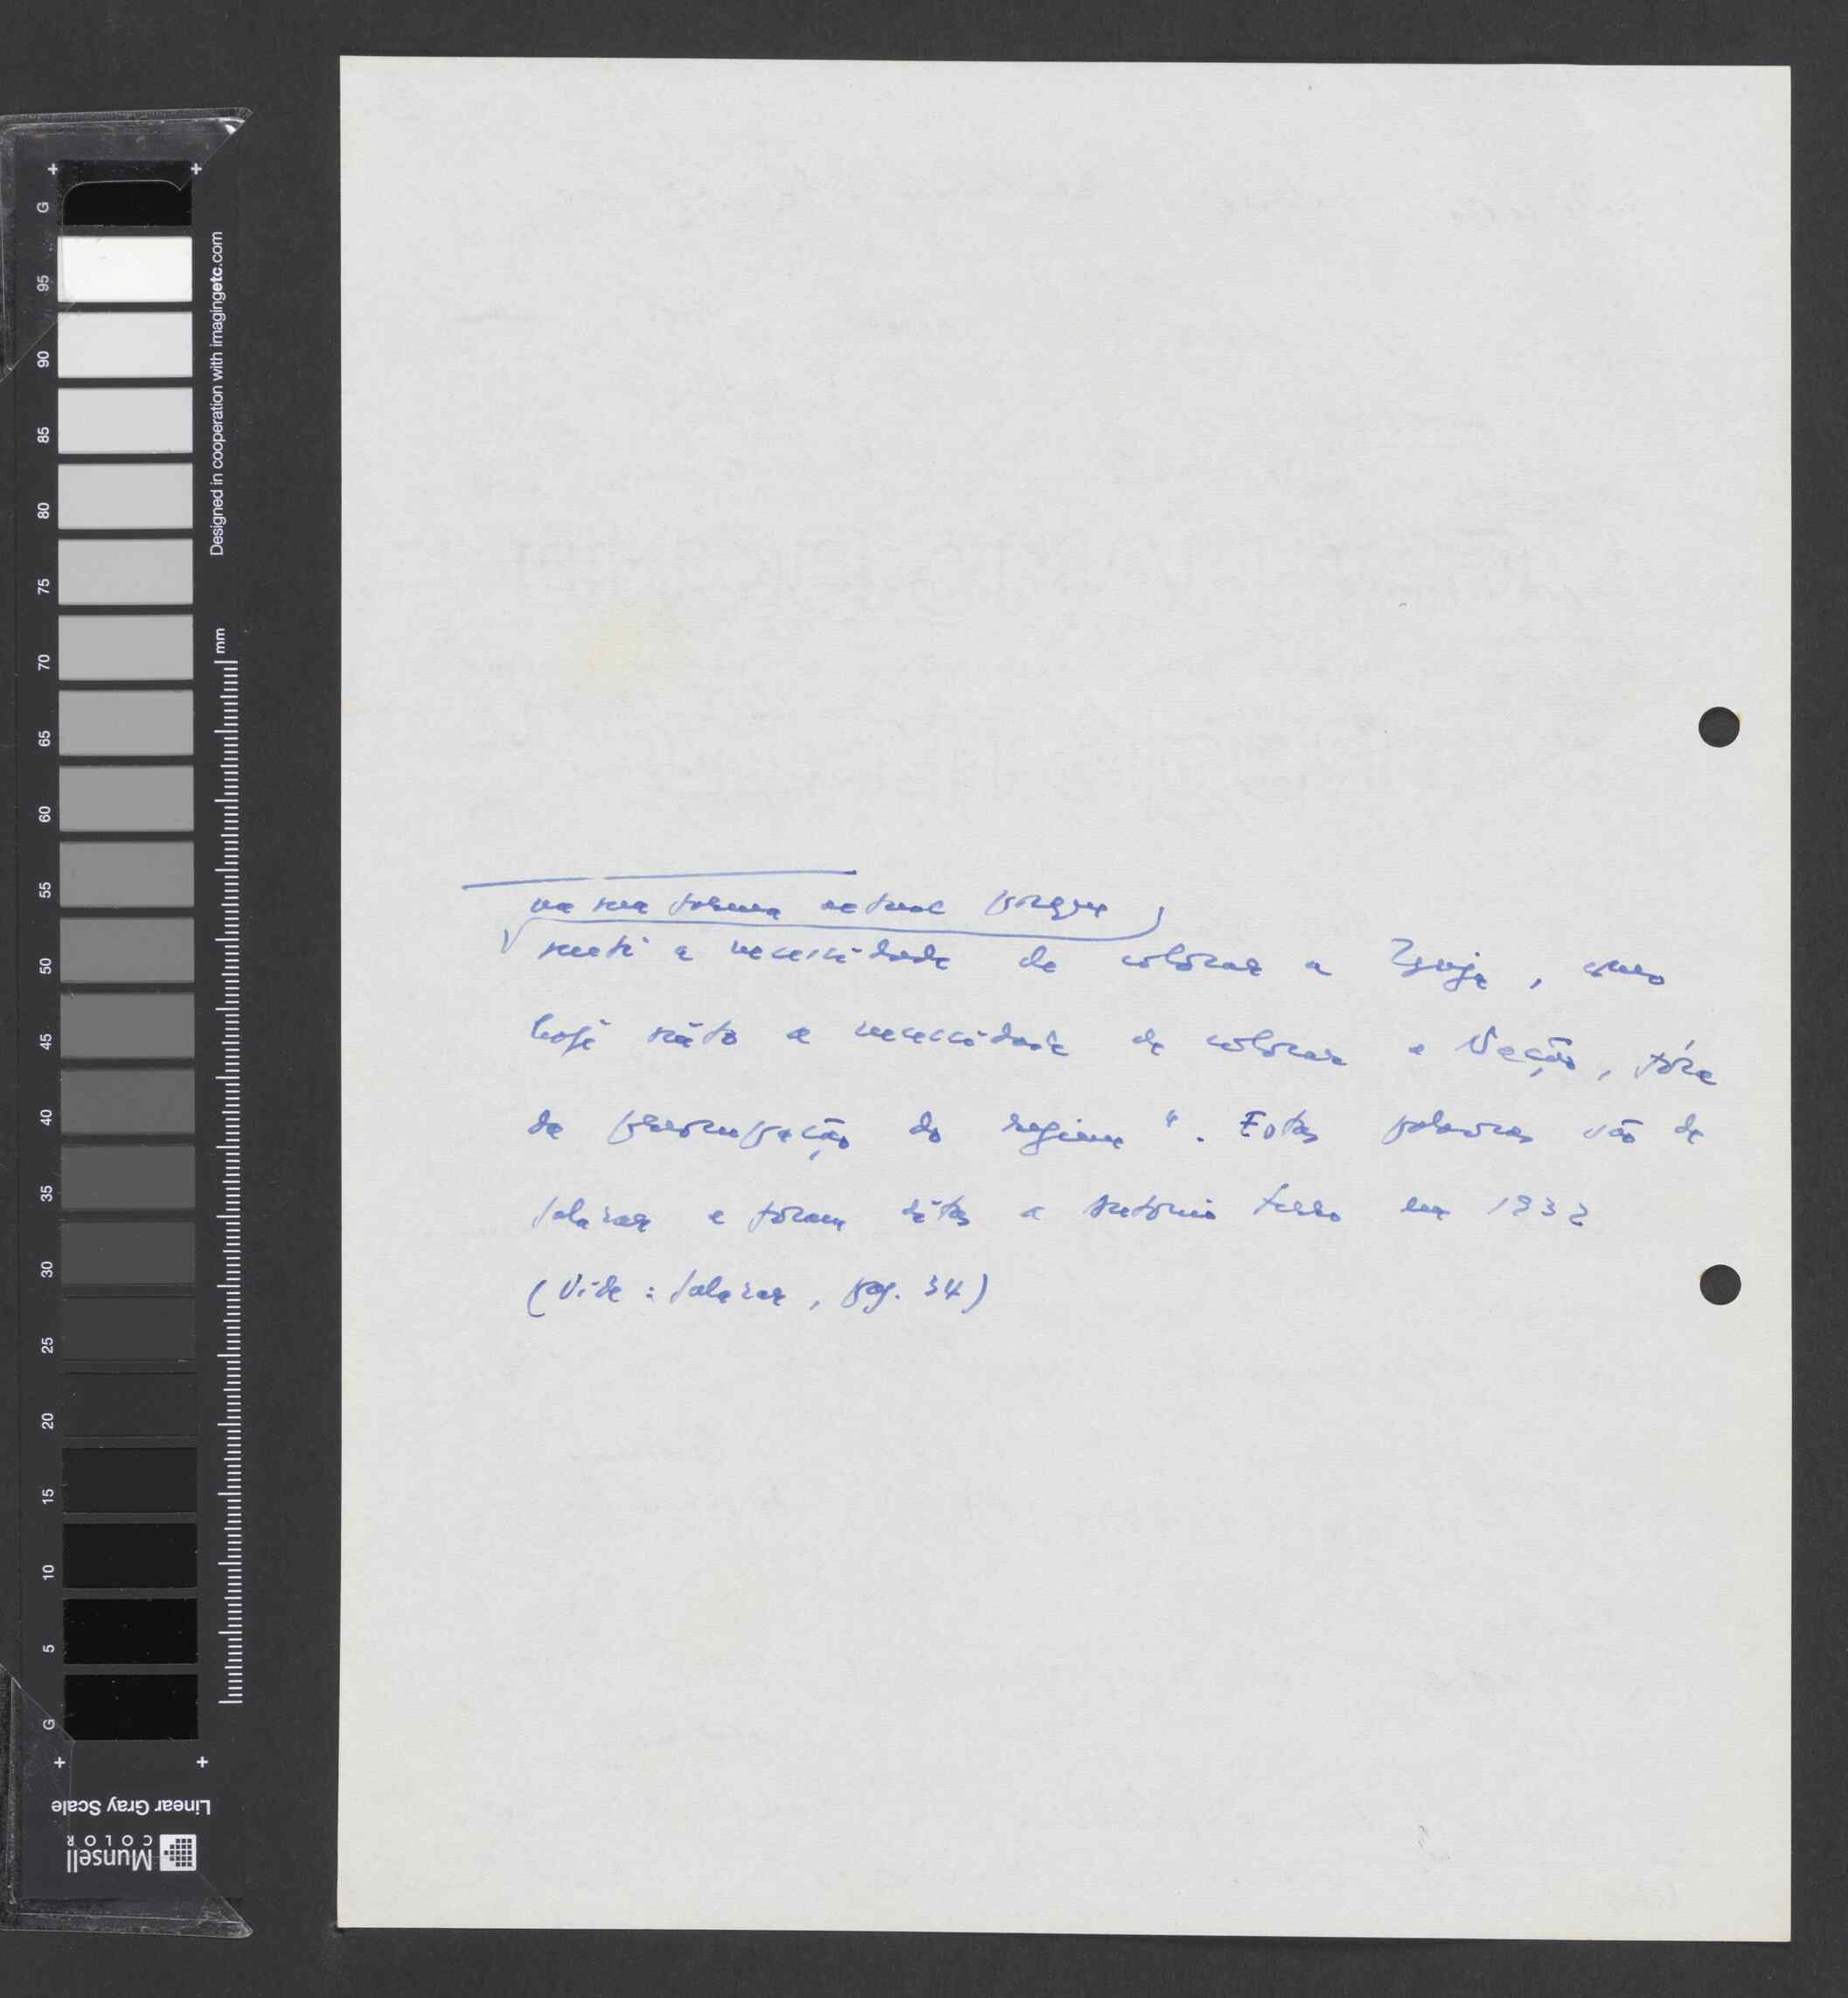 na sua forma actual porque
senti a necessidade de colocar a Igreja, como
hoje sinto a necessidade de colocar a Nação, fóra
da preocupação do regime". Estas palavras são de
Salazar e foram ditas a António Ferro em 1932
(Vide: Salazar, pag. 34)
G
95
90
85
80
75
70
65
60
55
50
45
40
35
30
25
20
15
10
5
G
Designed in cooperation with imagingetc.com
mm
Linear Gray Scale
Munsell
COLOR